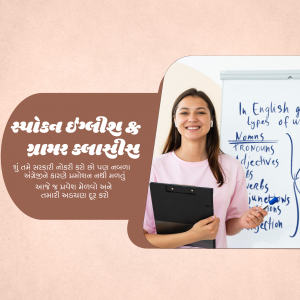 સ્પોકન ઇંગ્લીશ &
ગ્રામર ક્લાસીસ
શું તમે સરકારી નોકરી કરો છો પણ નબળા
અંગ્રેજીને કારણે પ્રમોશન નથી મળતું
આજે જ પ્રવેશ મેળવો અને
તમારી અડચણ દૂર કરો
In English g
types of w
Nouns
PRONOUNS
Adjectives
rbs
verbs